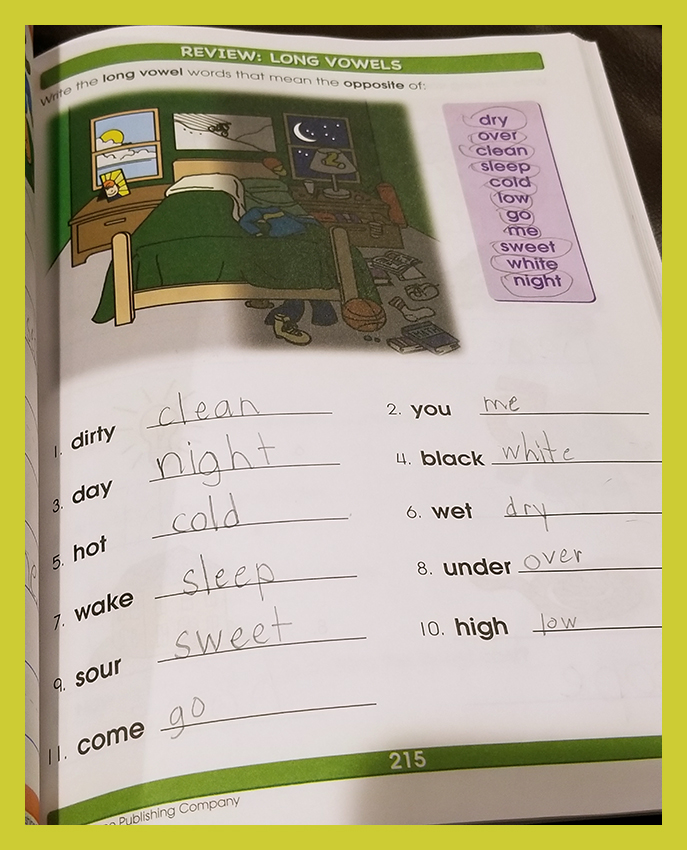 REVIEW: LONG VOWELS
Write the long vowel words that mean the opposite of:
dry
over
clean
sleep
cold
low
go
me
sweet
white
night
1. dirty clean
2. you me
3. day night
4. black white
5. hot cold
6. wet dry
7. wake sleep
8. under over
9. sour sweet
10. high low
11. come go
215
Publishing Company